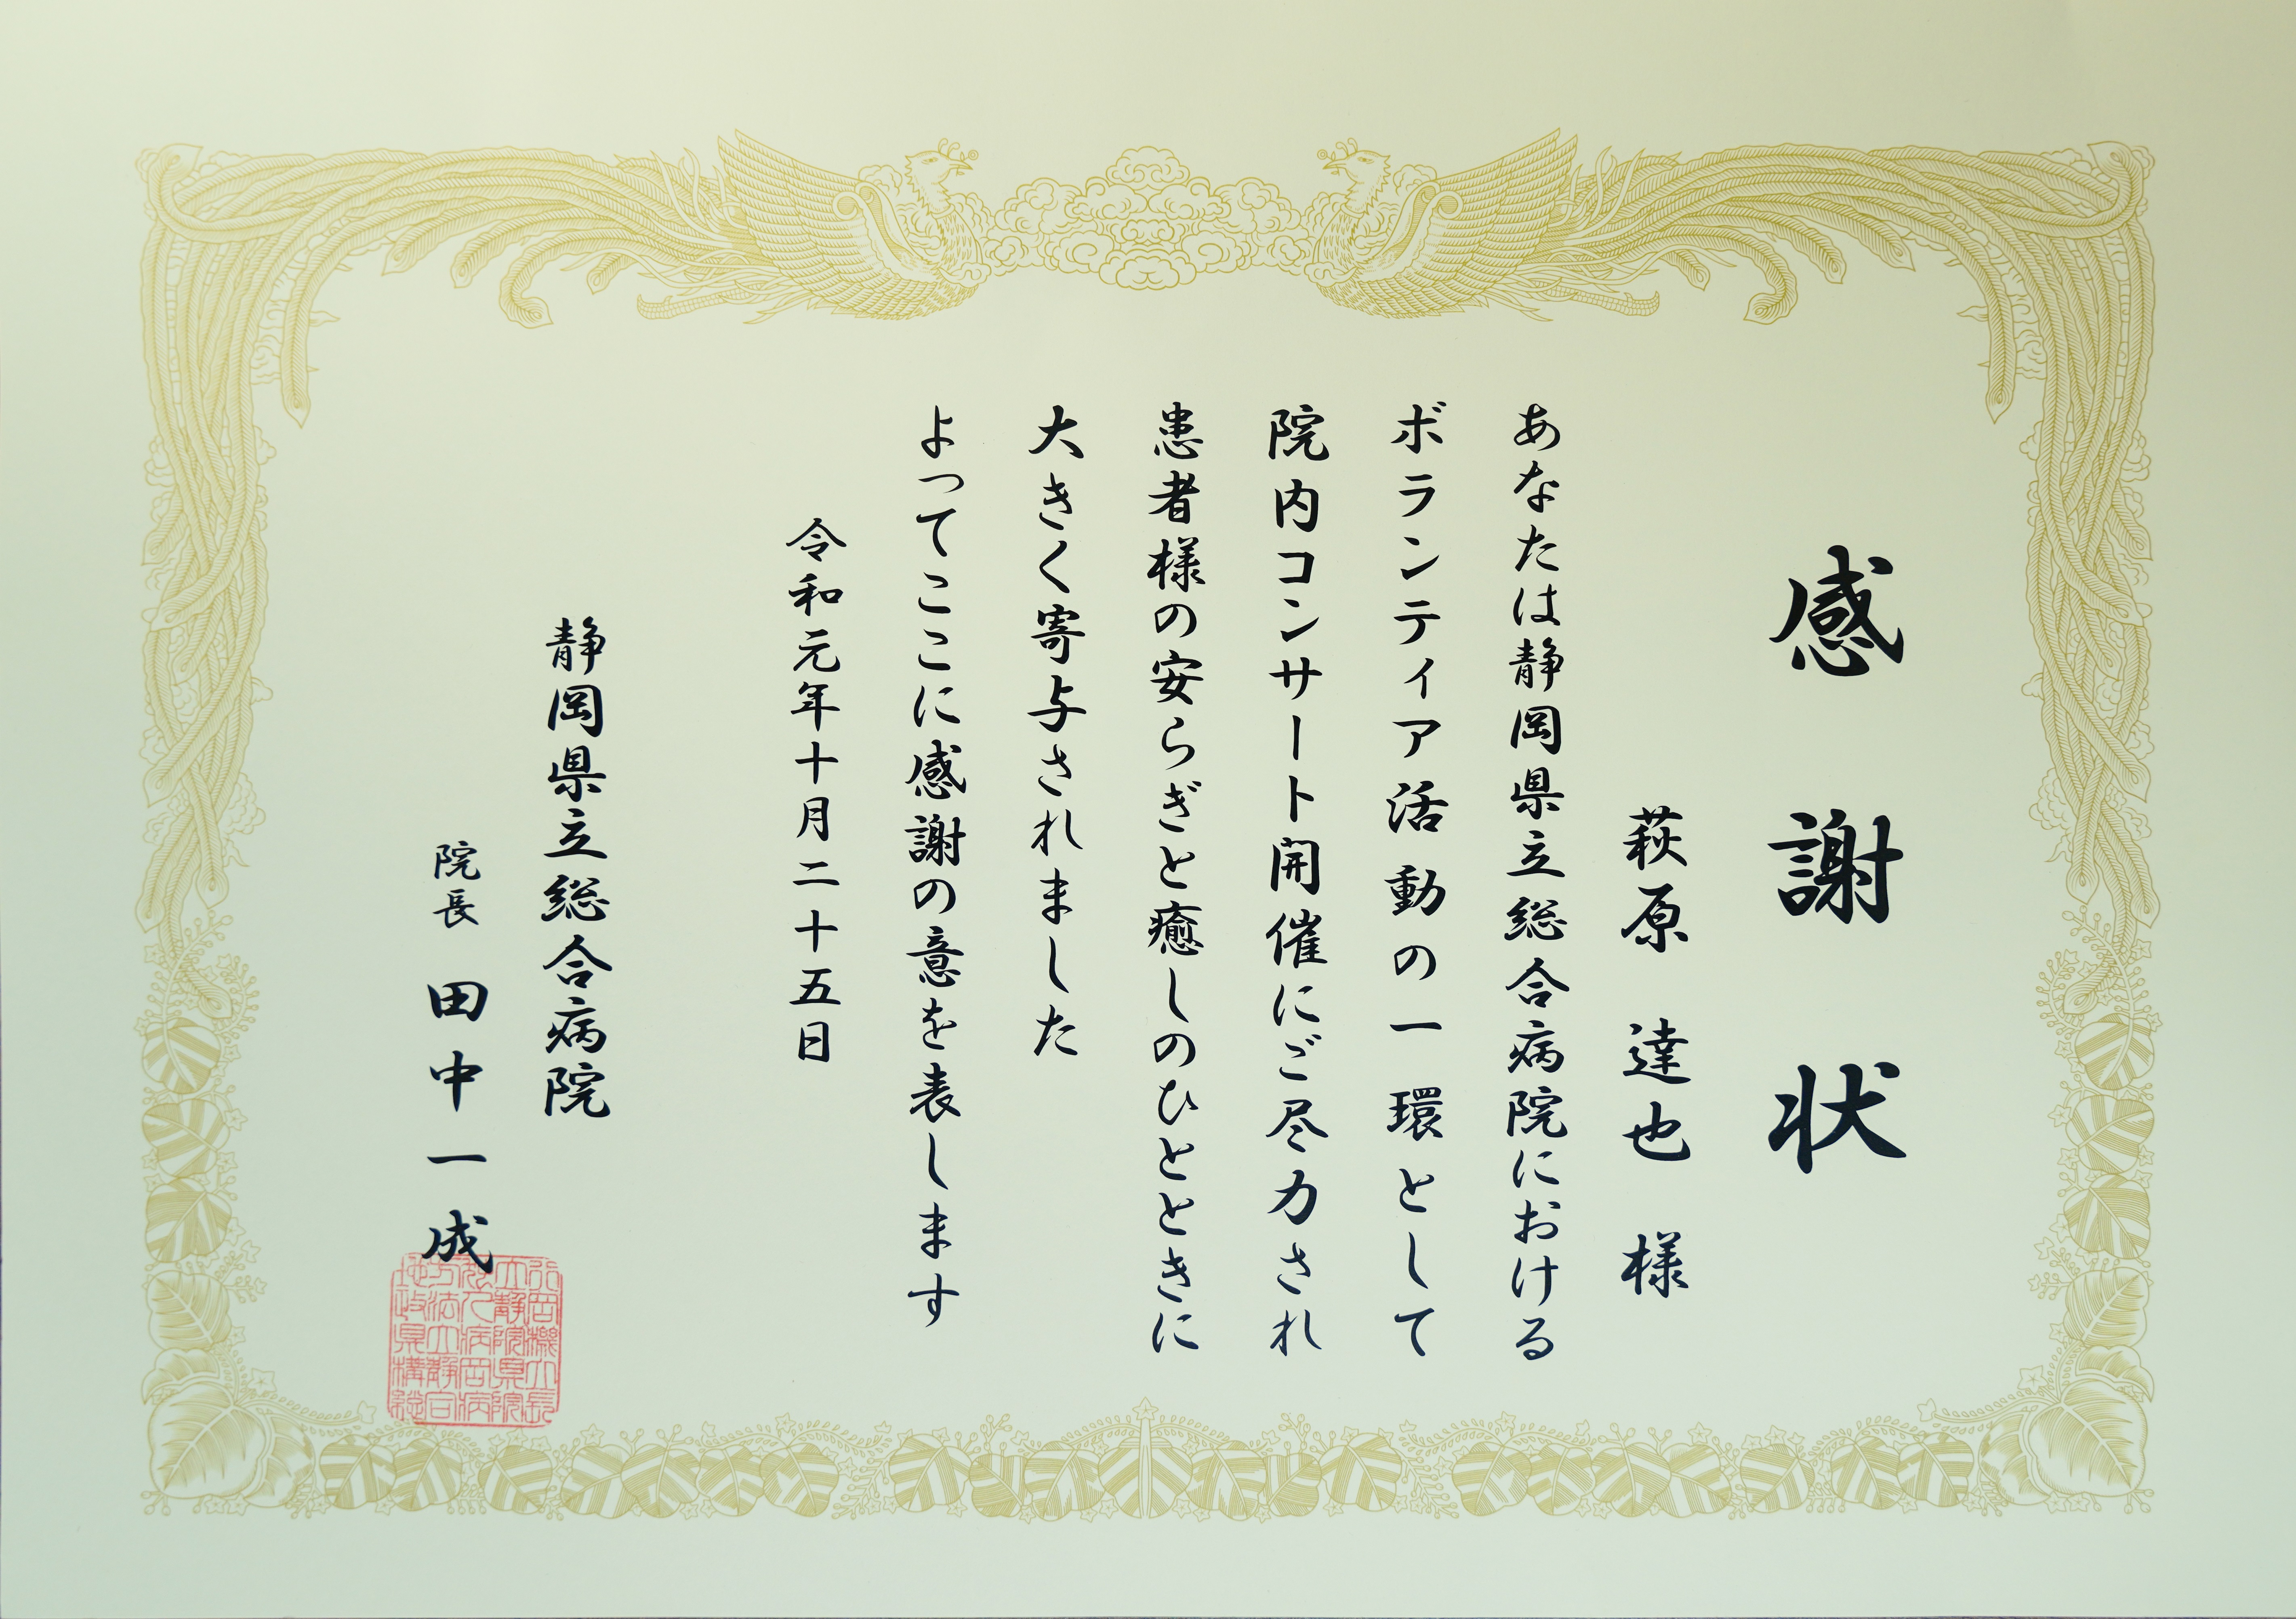 感謝状
萩原 達也 様
あなたは静岡県立総合病院における
ボランティア活動の一環として
院内コンサート開催にご尽力され
患者様の安らぎと癒しのひとときに
大きく寄与されました
よってここに感謝の意を表します
令和元年十月二十五日
静岡県立総合病院
院長 田中一成